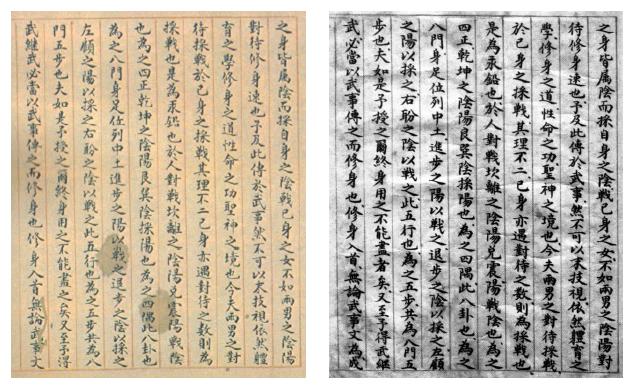 之身皆属陰而採自身之陰戰己身之女不如兩男之陰陽
對待修身速也予及此傳於武事然不可以末技視依然體
育之學修身之道性命之功聖神之境也今夫兩男之對
待採戰於己身之採戰其理不二己身亦遇對待之數則為
採戰也是為汞鉛也於人對戰坎離之陰陽兌震陽戰陰
也為之四正乾坤之陰陽艮巽陰採陽也為之四隅此八卦也
為之八門身足位列中土進步之陽以戰之退步之陰以採之
左顧之陽以採之右盼之陰以戰之此五行也為之五步共為八
門五步也夫如是予授之爾終身用之不能盡之矣又至予得
武繼武必當以武事傳之而修身也修身入首無論武事文
之身皆属陰而採自身之陰戰己身之女不如兩男之陰陽對
待修身速也予及此傳於武事然不可以末技視依然體育之
學修身之道性命之功聖神之境也今夫兩男之對待採戰
於己身之採戰其理不二己身亦遇對待之數則為採戰也
是為汞鉛也於人對戰坎離之陰陽兌震陽戰陰也為之
四正乾坤之陰陽艮巽陰採陽也為之四隅此八卦也為之
八門身足位列中土進步之陽以戰之退步之陰以採之左顧
之陽以採之右盼之陰以戰之此五行也為之五步共為八門五
步也夫如是予授之爾終身用之不能盡者矣又至予得武繼
武必當以武事傳之而修身也修身入首無論武事文為成